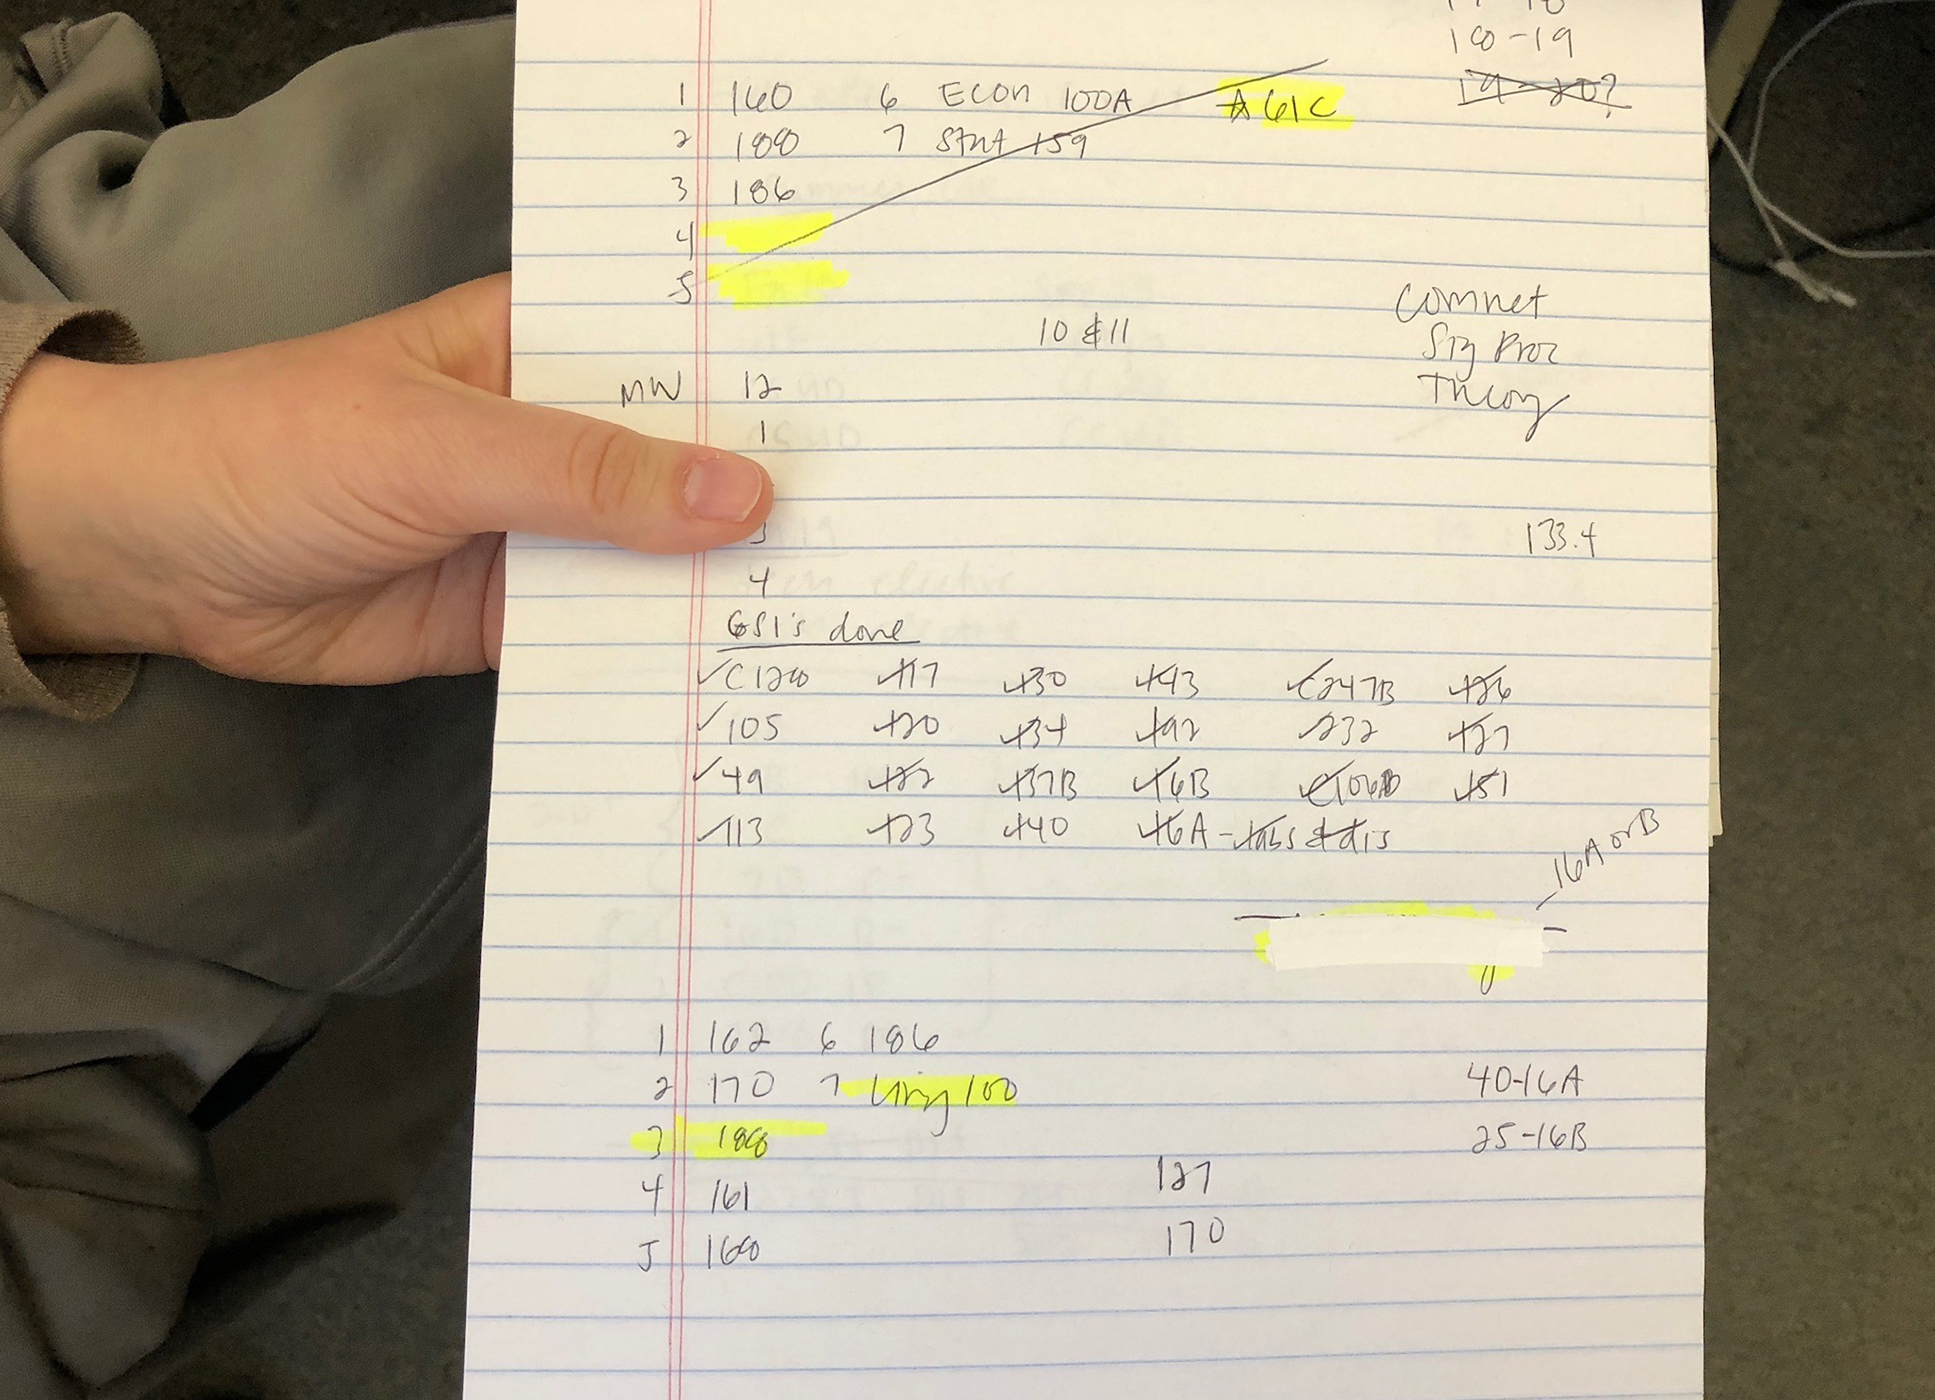 18-19
19-20?
1 160 6 Econ 100A ☆ 61C
2 188 7 Stat 159
3 186
4
5
Comnet
10 & 11
Sig Proc
MW 12
Theory
1
3
133.4
4
GSI's done
✓C128 ✓117 ✓130 ✓143 ✓C247B ✓126
✓105 ✓120 ✓134 ✓192 ✓232 ✓127
✓49 ✓122 ✓137B ✓16B ✓151
✓113 ✓123 ✓140 ✓16A - labs & dis
16A or B
1 162 6 186
2 170 7 Ling 100
40-16A
3 188
25-16B
4 161 127
5 168 170